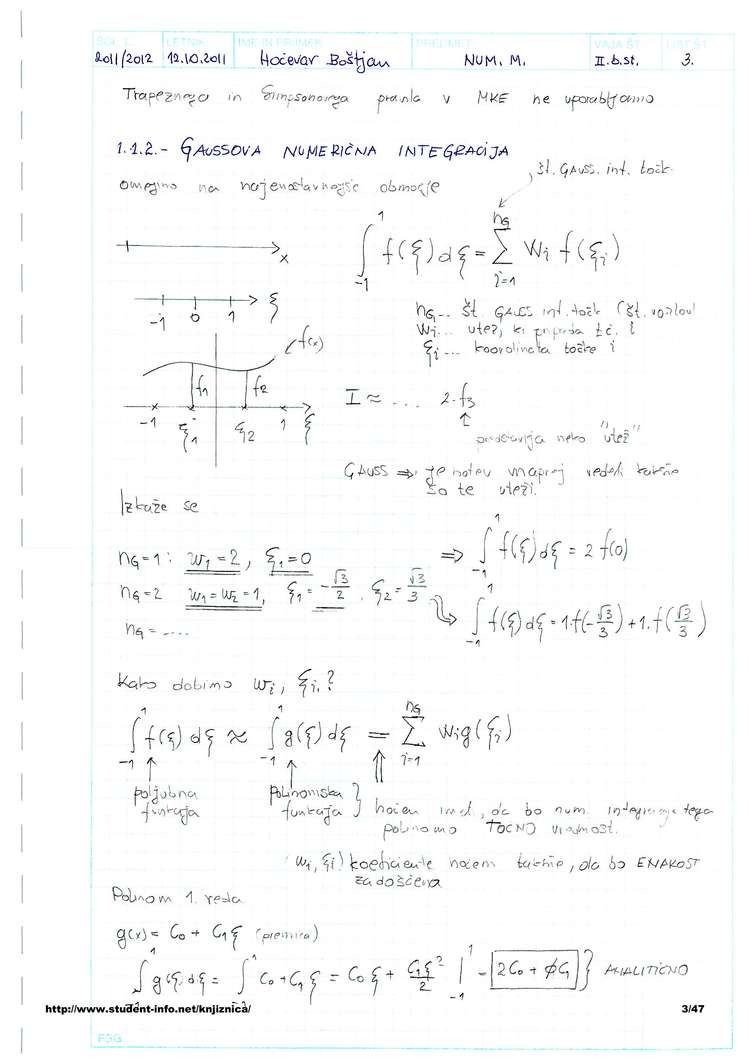 ŠOL. L. LETNIK IME IN PRIIMEK PREDMET VAJA ŠT. LIST ŠT.
2011/2012 12.10.2011 Hočevar Boštjan NUM. M. II.b.st. 3.
Trapeznega in Simpsonovega pravila v MKE ne uporabljamo
1.1.2.- GAUSSOVA NUMERIČNA INTEGRACIJA
št. GAUSS. int. točk.
omejimo na najenostavnejše območje
∫_{-1}^{1} f(ξ) dξ = Σ_{i=1}^{nG} Wi f(ξi)
x
-1 0 1 ξ
nG... št. GAUSS int. točk (št. vozlov)
Wi... utež, ki pripada tč. i
ξi... koordinata točke i
f(x)
f1 f2
-1 ξ1 ξ2 1 ξ
I ≈ ... 2·f3
predstavlja neko "utež"
GAUSS ⇒ je hotel naprej vedeti kakšne
so te uteži.
Izkaže se
nG=1: w1=2, ξ1=0 ⇒ ∫_{-1}^{1} f(ξ) dξ = 2 f(0)
nG=2 w1=w2=1, ξ1=-√3/2. ξ2=√3/3
∫_{-1}^{1} f(ξ) dξ = 1·f(-√3/3) + 1·f(√3/3)
nG=....
Kako dobimo wi, ξi.?
∫_{-1}^{1} f(ξ) dξ ≈ ∫_{-1}^{1} g(ξ) dξ = Σ_{i=1}^{nG} Wi g(ξi)
poljubna funkcija
polinomska funkcija } hočem imet, da bo num. integracija tega
polinoma TOČNO vrednost.
(wi, ξi) koeficiente hočem takšne, da bo ENAKOST
zadoščena
Polinom 1. reda
g(x) = C0 + C1ξ (premica)
∫_{-1}^{1} g(ξ) dξ = ∫^{1} C0 + C1ξ = C0ξ + C1ξ²/2 |_{-1}^{1} - 2C0 + φC1 } ANALITIČNO
http://www.student-info.net/knjiznica/ 3/47
FGG